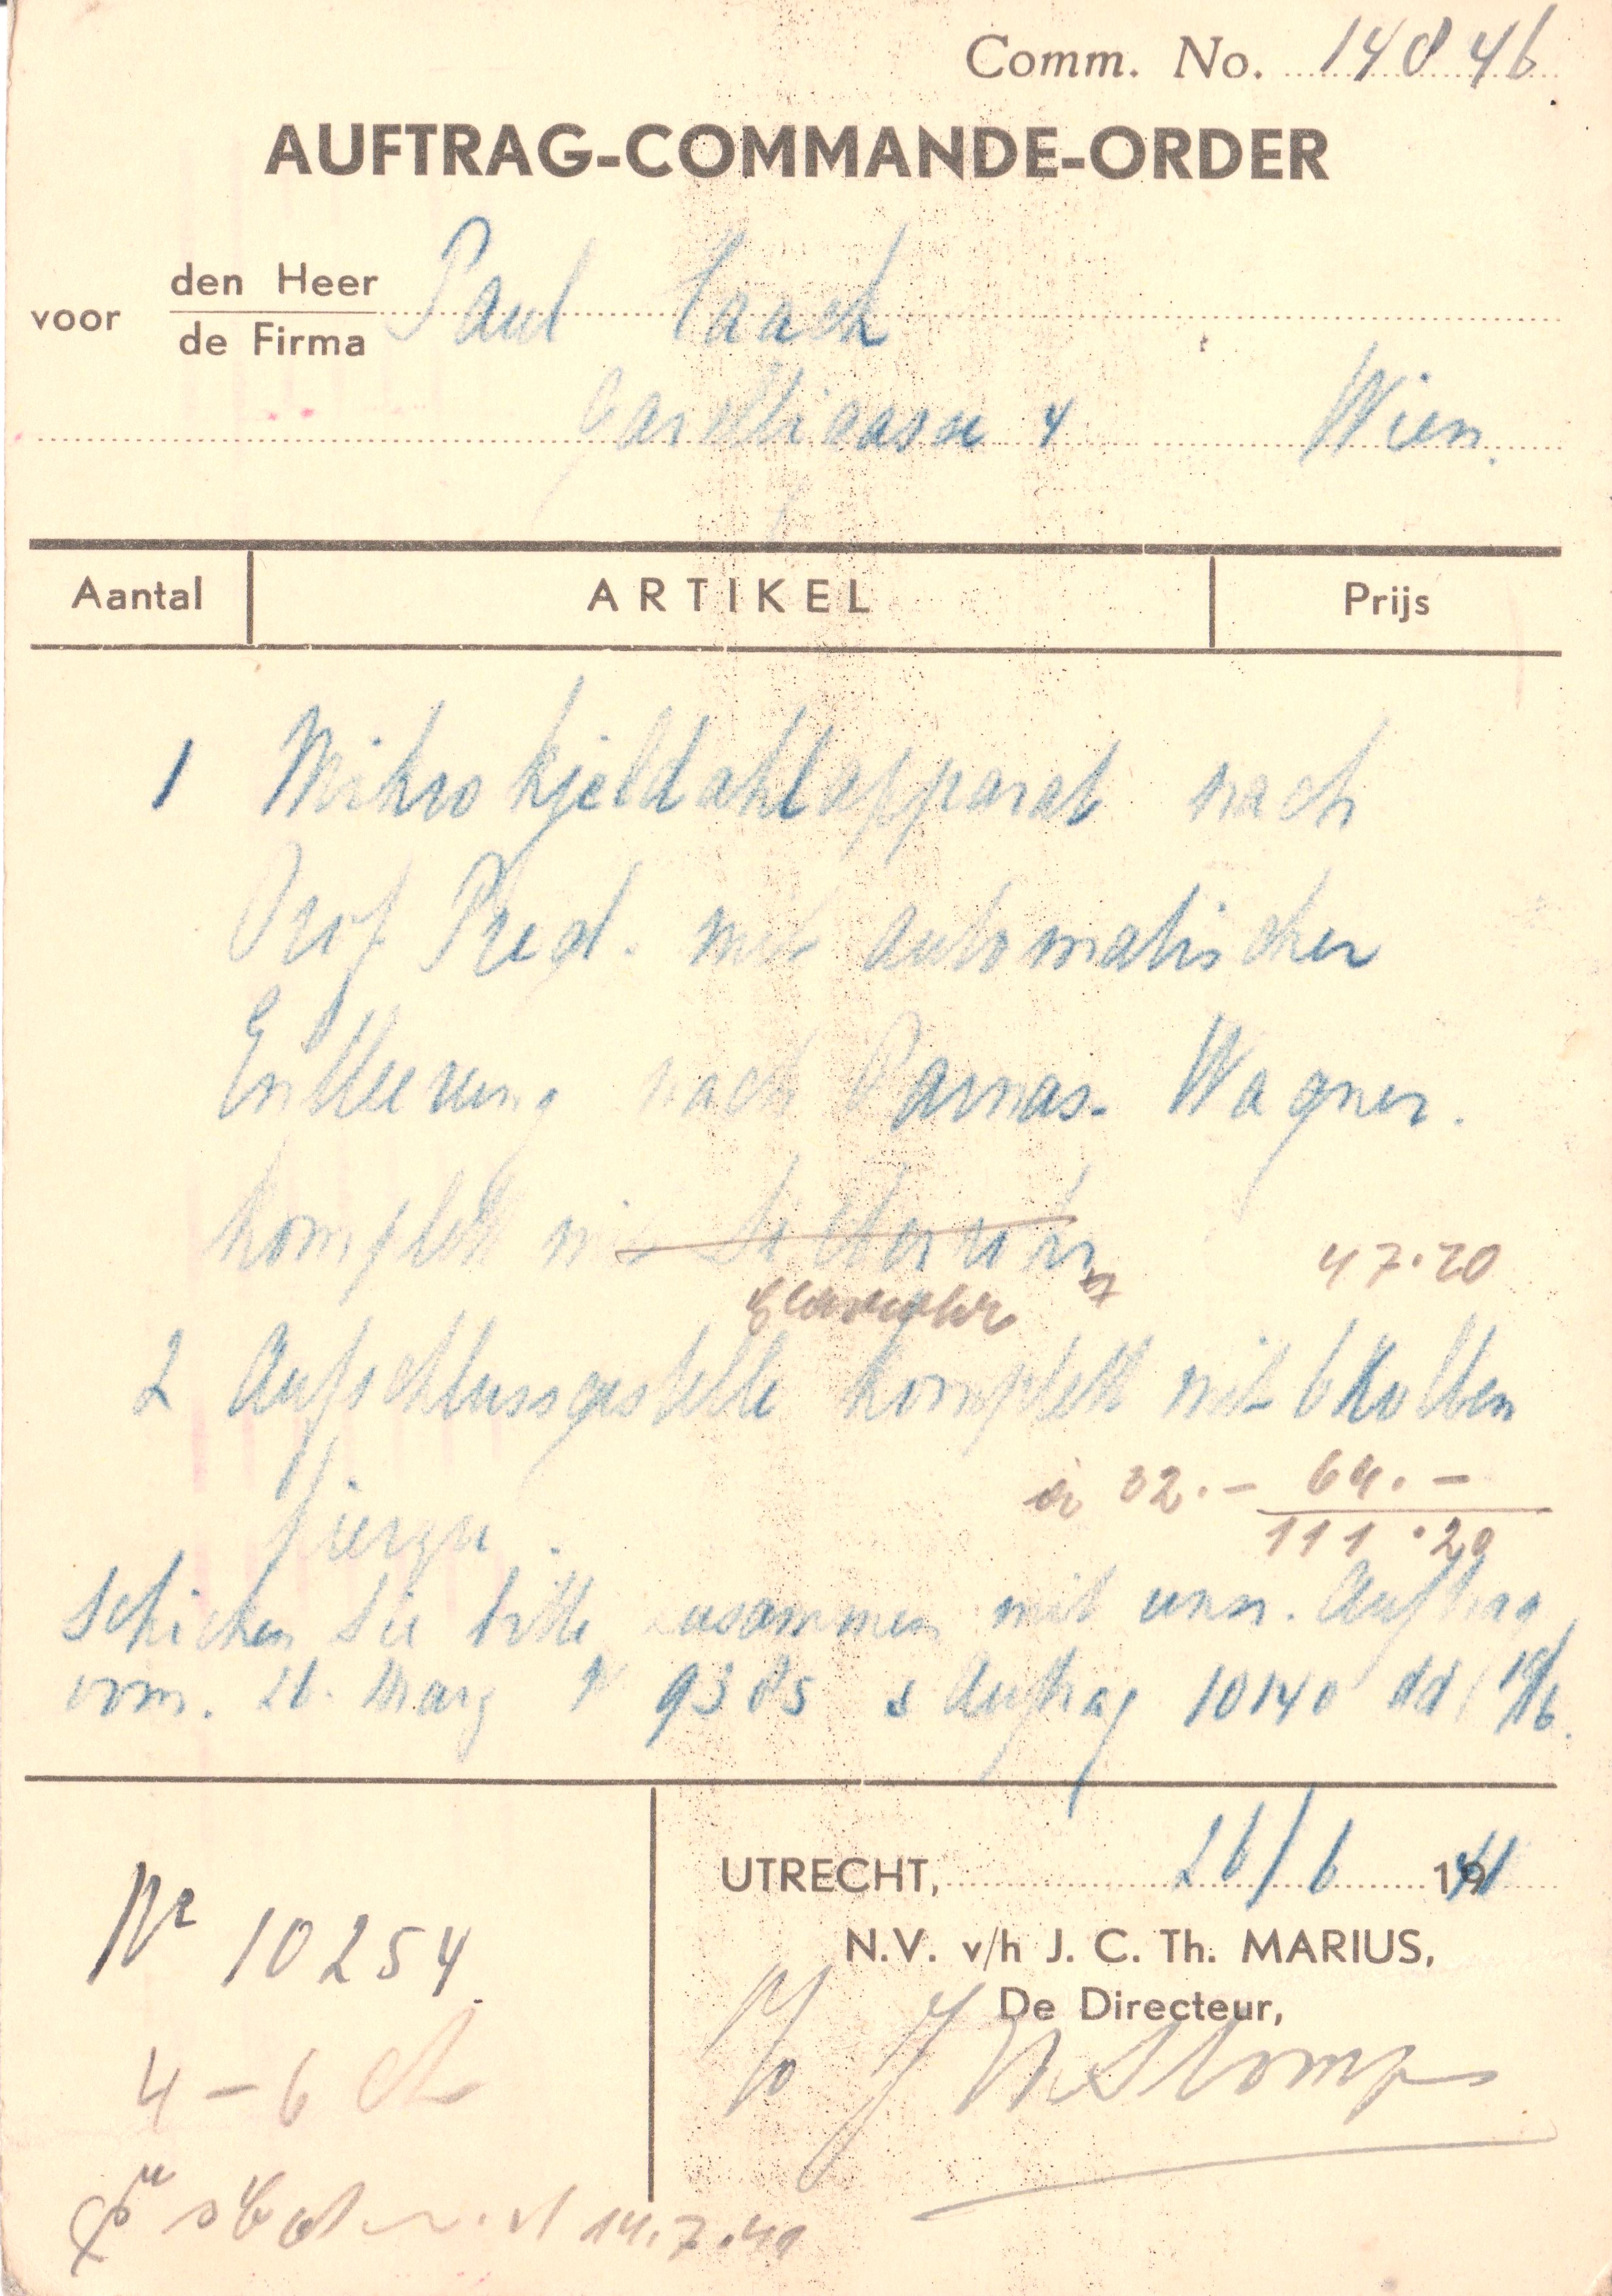 Comm. No. 14846
AUFTRAG-COMMANDE-ORDER
voor den Heer
de Firma
Paul Haack
Garelligasse 4 Wien.
Aantal ARTIKEL Prijs
1 Mikro kjeldahlapparat nach
Prof Pregl. mit automatischer
Entleerung nach Parnas-Wagner.
komplett mit Silberrohr 47.20
Glasrohr
2 Aufschlussgestelle komplett mit 6 Kolben
à 32.- 64.-
hierzu. 111.20
Schicken Sie bitte zusammen mit uns. Auftrag
vom. 26. Marz N 9385 & Auftrag 10140 dd
UTRECHT, 26/6 1941
N.V. v/h J. C. Th. MARIUS,
De Directeur,
Nr 10254.
4-6
14.7.41